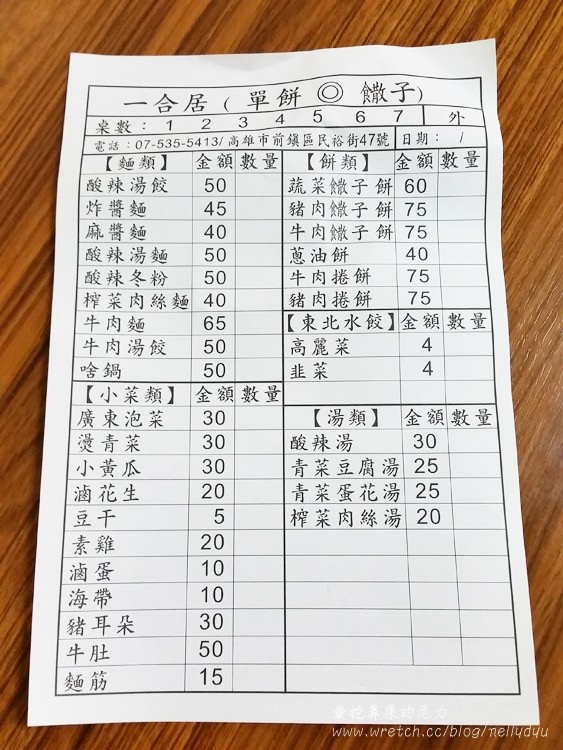 一合居 ( 單餅 ◎ 饊子)
桌數： 1 2 3 4 5 6 7 外
電話：07-535-5413/高雄市前鎮區民裕街47號 日期： /
【麵類】 金額 數量
酸辣湯餃 50
炸醬麵 45
麻醬麵 40
酸辣湯麵 50
酸辣冬粉 50
榨菜肉絲麵 40
牛肉麵 65
牛肉湯餃 50
啥鍋 50
【小菜類】 金額 數量
廣東泡菜 30
燙青菜 30
小黃瓜 30
滷花生 20
豆干 5
素雞 20
滷蛋 10
海帶 10
豬耳朵 30
牛肚 50
麵筋 15
【餅類】 金額 數量
蔬菜饊子餅 60
豬肉饊子餅 75
牛肉饊子餅 75
蔥油餅 40
牛肉捲餅 75
豬肉捲餅 75
【東北水餃】 金額 數量
高麗菜 4
韭菜 4
【湯類】 金額 數量
酸辣湯 30
青菜豆腐湯 25
青菜蛋花湯 25
榨菜肉絲湯 20
www.wretch.cc/blog/nellydyu